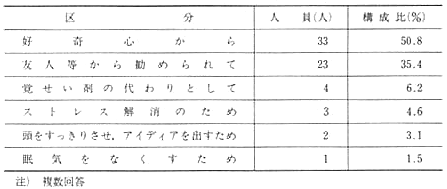 区分 人員(人) 構成比(%)
好奇心から 33 50.8
友人等から勧められて 23 35.4
覚せい剤の代わりとして 4 6.2
ストレス解消のため 3 4.6
頭をすっきりさせ,アイディアを出すため 2 3.1
眠気をなくすため 1 1.5
注) 複数回答